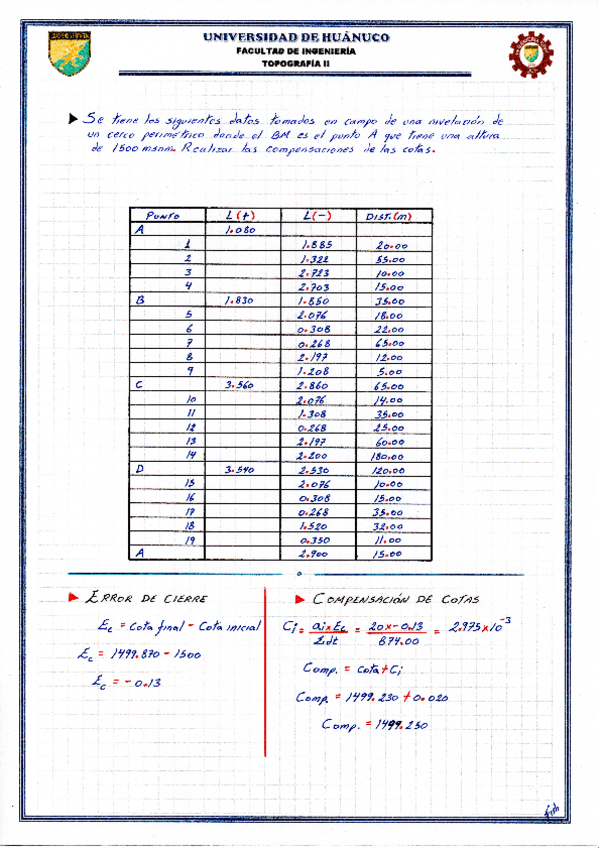 UNIVERSIDAD DE HUÁNUCO
FACULTAD DE INGENIERÍA
TOPOGRAFÍA II
Se tiene los siguientes datos tomados en campo de una nivelación de
un cerco perimétrico donde el BM es el punto A que tiene una altura
de 1500 msnm. Realizar las compensaciones de las cotas.
PUNTO L(+) L(-) DIST.(m)
A 1.080
1 1.885 20.00
2 1.322 55.00
3 2.723 10.00
4 2.703 15.00
B 1.830 1.850 35.00
5 2.076 18.00
6 0.308 22.00
7 0.268 65.00
8 2.197 12.00
9 1.208 5.00
C 3.560 2.860 65.00
10 2.076 14.00
11 1.308 35.00
12 0.268 25.00
13 2.197 60.00
14 2.200 180.00
D 3.540 2.530 120.00
15 2.076 10.00
16 0.308 15.00
17 0.268 35.00
18 1.520 32.00
19 0.350 11.00
A 2.900 15.00
ERROR DE CIERRE
Ec = Cota final - Cota inicial
Ec = 1499.870 - 1500
Ec = - 0.13
COMPENSACIÓN DE COTAS
Ci = ai x Ec / Σdt = 20 x -0.13 / 874.00 = 2.975 x 10^-3
Comp. = cota + Ci
Comp. = 1499.230 + 0.020
Comp. = 1499.250